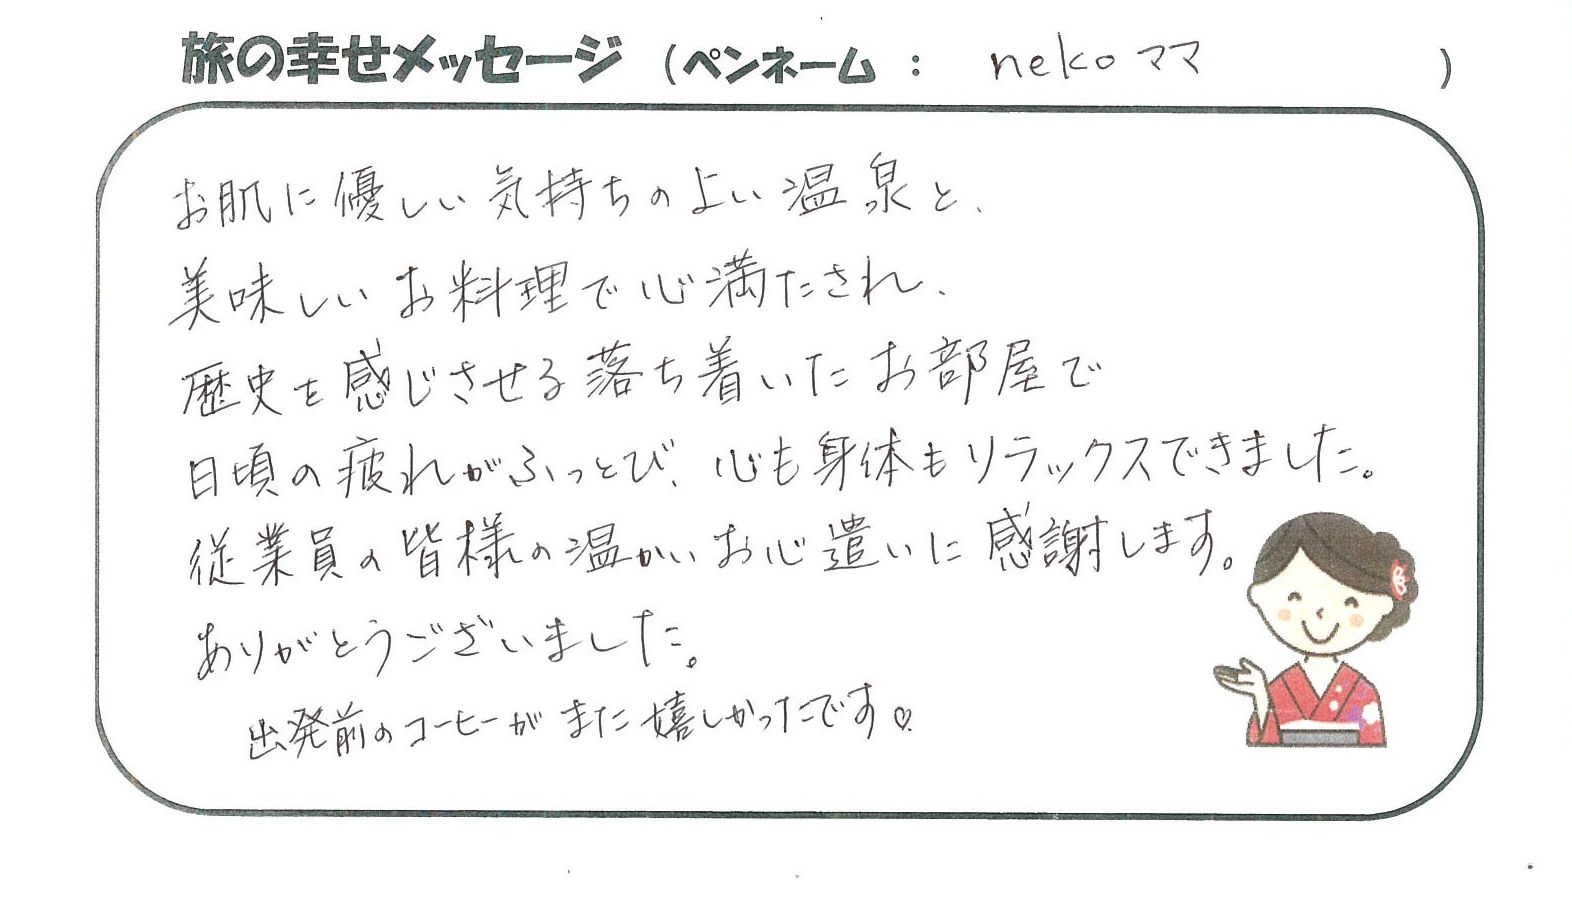 旅の幸せメッセージ (ペンネーム : nekoママ )
お肌に優しい気持ちのよい温泉と、
美味しいお料理で心満たされ、
歴史を感じさせる落ち着いたお部屋で
日頃の疲れがふっとび、心も身体もリラックスできました。
従業員の皆様の温かいお心遣いに感謝します。
ありがとうございました。
出発前のコーヒーがまた嬉しかったです♡